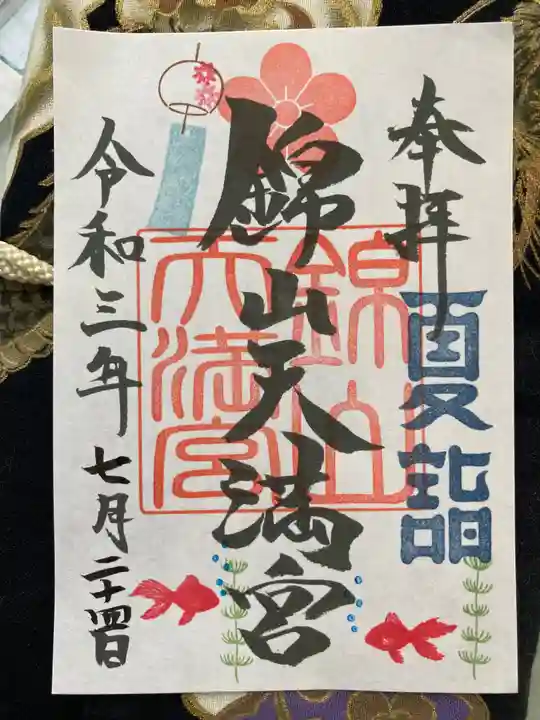 奉拝
夏詣
錦山天満宮
錦山
天満宮
令和三年七月二十四日